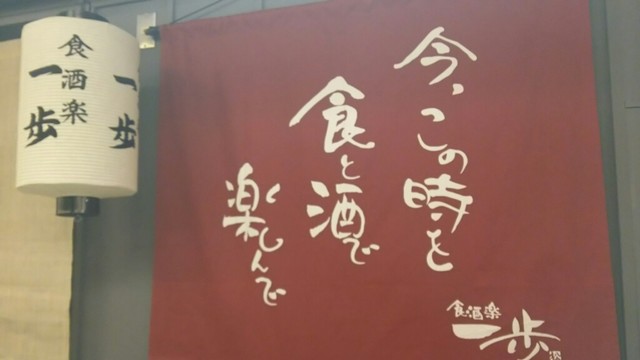 食酒楽
一歩
一歩
今、この時を
食と酒で
楽しんで
食酒楽
一歩